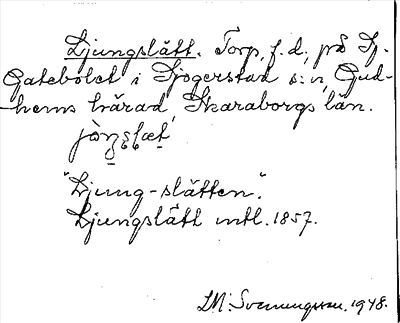 Ljungslätt. Torp, f.d., på Sj.
Gatebolet i Sjogerstad s:n, Gud-
hems härad, Skaraborgs län.
"Ljung-slätten".
Ljungslätt intl. 1857.
LM: Svenungsson. 1948.